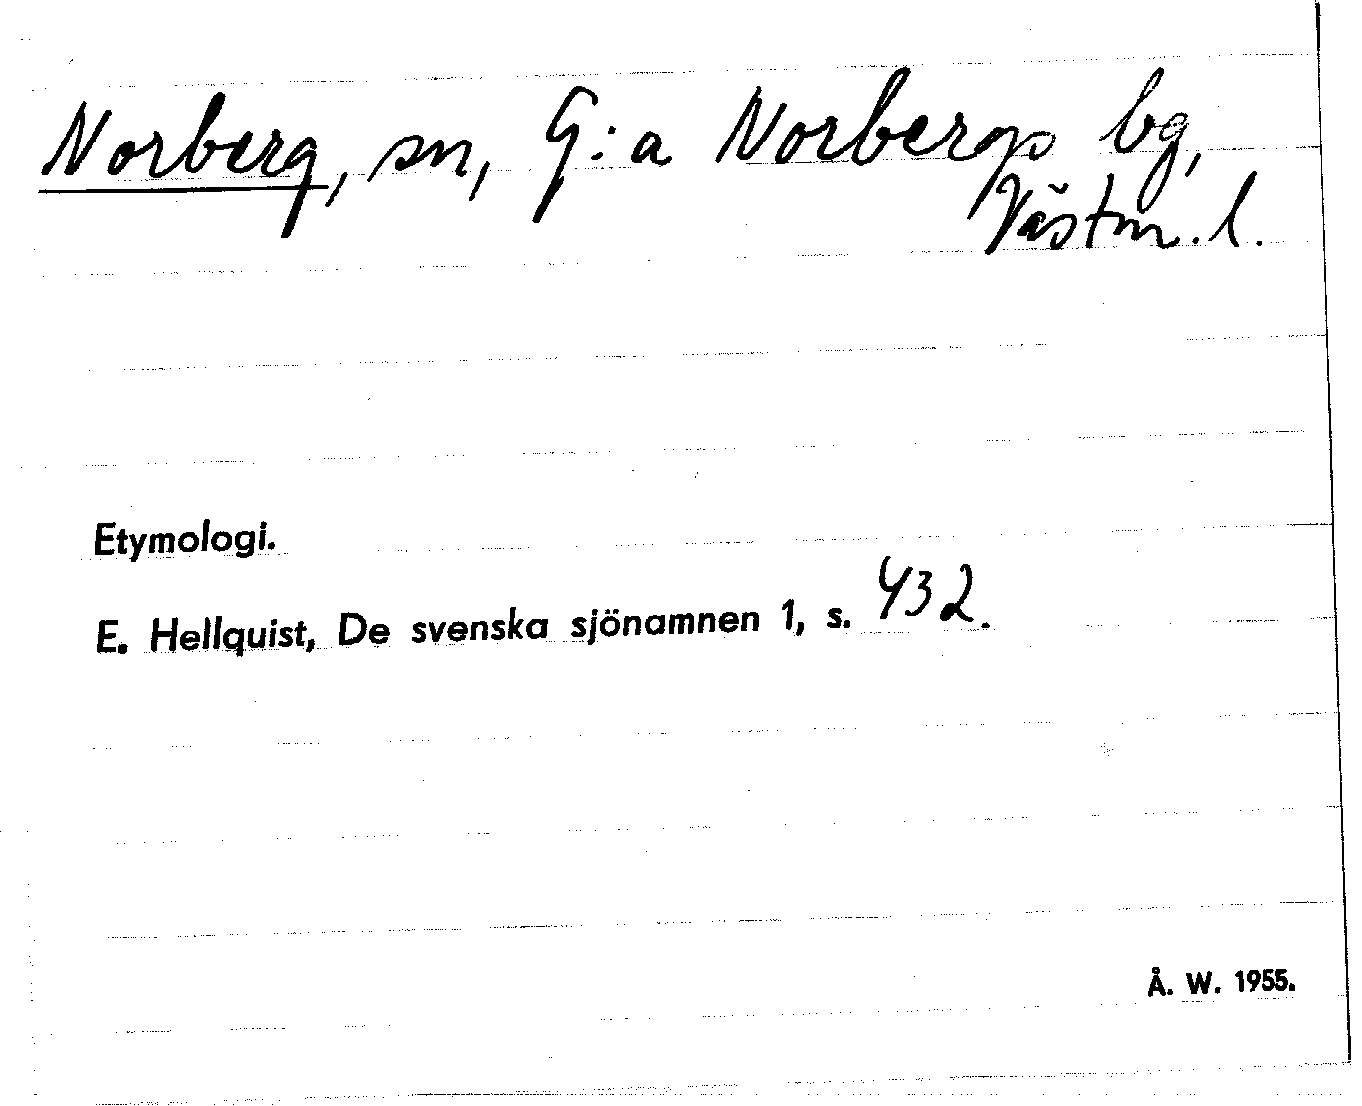 Norberg, sn, G:a Norbergs bg,
Västm. l.
Etymologi.
E. Hellquist, De svenska sjönamnen 1, s. 432.
Å. W. 1955.